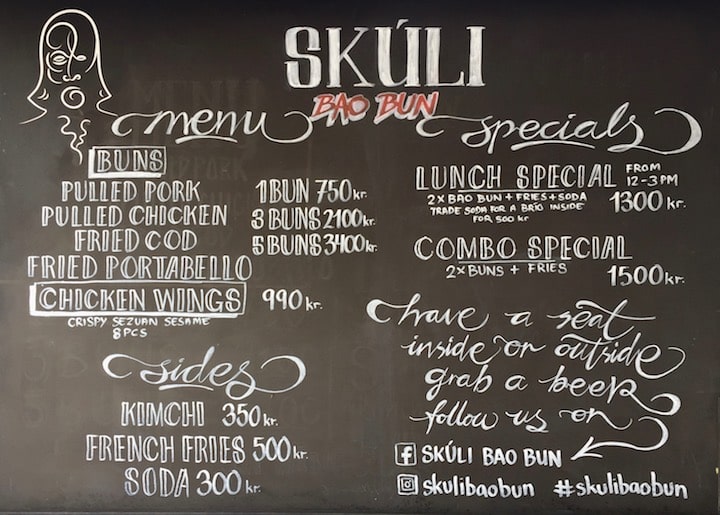 SKÚLI
BAO BUN
menu
BUNS
PULLED PORK
PULLED CHICKEN
FRIED COD
FRIED PORTABELLO
1 BUN 750 kr.
3 BUNS 2100 kr.
5 BUNS 3400 kr.
CHICKEN WINGS 990 kr.
CRISPY SEZUAN SESAME
8 PCS
sides
KIMCHI 350 kr.
FRENCH FRIES 500 kr.
SODA 300 kr.
specials
LUNCH SPECIAL FROM
12-3 PM
2 x BAO BUN + FRIES + SODA
TRADE SODA FOR A BRÍÓ INSIDE
FOR 500 kr
1300 kr.
COMBO SPECIAL
2 x BUNS + FRIES
1500 kr.
have a seat
inside or outside
grab a beer
follow us on
SKÚLI BAO BUN
skulibaobun #skulibaobun